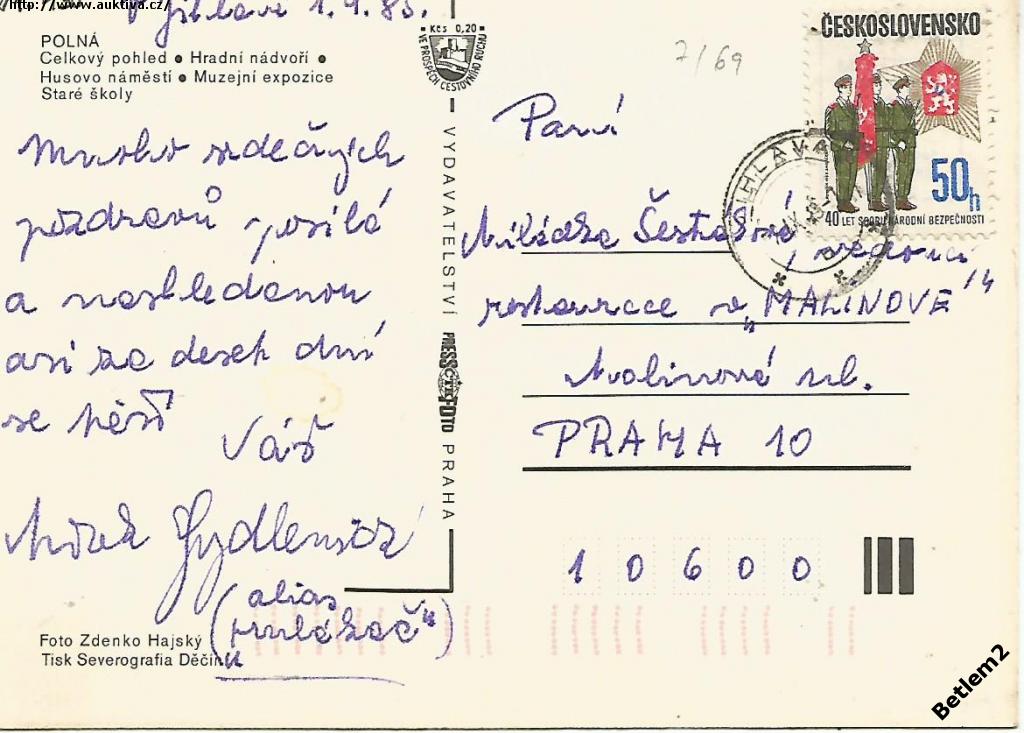 http://www.auktiva.cz/
V Jihlavě 1.9.85.
POLNÁ
Celkový pohled ● Hradní nádvoří ●
Husovo náměstí ● Muzejní expozice
Staré školy
Mnoho srdečných
pozdravů posílá
a nashledanou
asi za deset dní
se těší
Váš
Mirek
(alias
Foto Zdenko Hajský
Tisk Severografia Děčín
Kčs 0,20
VE PROSPĚCH CESTOVNÍHO RUCHU
VYDAVATELSTVÍ PRESSFOTO PRAHA
7/69
ČESKOSLOVENSKO
50h
40 LET SBORU NÁRODNÍ BEZPEČNOSTI
JIHLAVA
Paní
Miládka Šestáková, vedoucí
restaurace v „MALINOVÉ"
Malinová ul.
PRAHA 10
10600
Betlem2